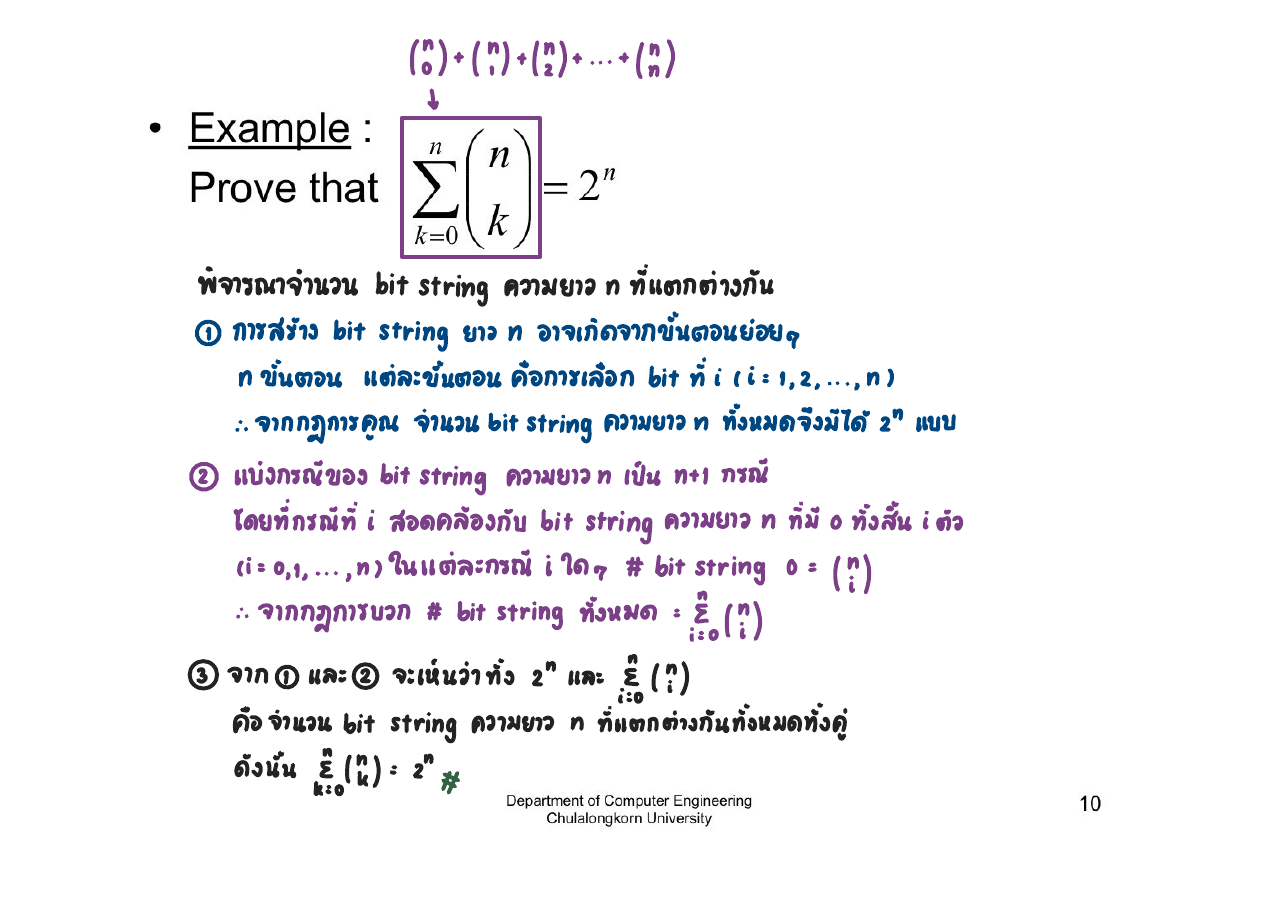 (n 0) + (n 1) + (n 2) + ... + (n n)
↓
• Example :
Prove that \sum_{k=0}^{n} \binom{n}{k} = 2^n
พิจารณาจำนวน bit string ความยาว n ที่แตกต่างกัน
① การสร้าง bit string ยาว n อาจเกิดจากขั้นตอนย่อยๆ
n ขั้นตอน แต่ละขั้นตอน คือการเลือก bit ที่ i (i = 1,2, ..., n)
∴ จากกฎการคูณ จำนวน bit string ความยาว n ทั้งหมดจึงมีได้ 2^n แบบ
② แบ่งกรณีของ bit string ความยาว n เป็น n+1 กรณี
โดยที่กรณีที่ i สอดคล้องกับ bit string ความยาว n ที่มี 0 ทั้งสิ้น i ตัว
(i = 0,1, ..., n) ในแต่ละกรณี i ใดๆ # bit string 0 = \binom{n}{i}
∴ จากกฎการบวก # bit string ทั้งหมด = \sum_{i=0}^{n} \binom{n}{i}
③ จาก ① และ ② จะเห็นว่าทั้ง 2^n และ \sum_{i=0}^{n} \binom{n}{i}
คือ จำนวน bit string ความยาว n ที่แตกต่างกันทั้งหมดทั้งคู่
ดังนั้น \sum_{k=0}^{n} \binom{n}{k} = 2^n #
Department of Computer Engineering
Chulalongkorn University
10